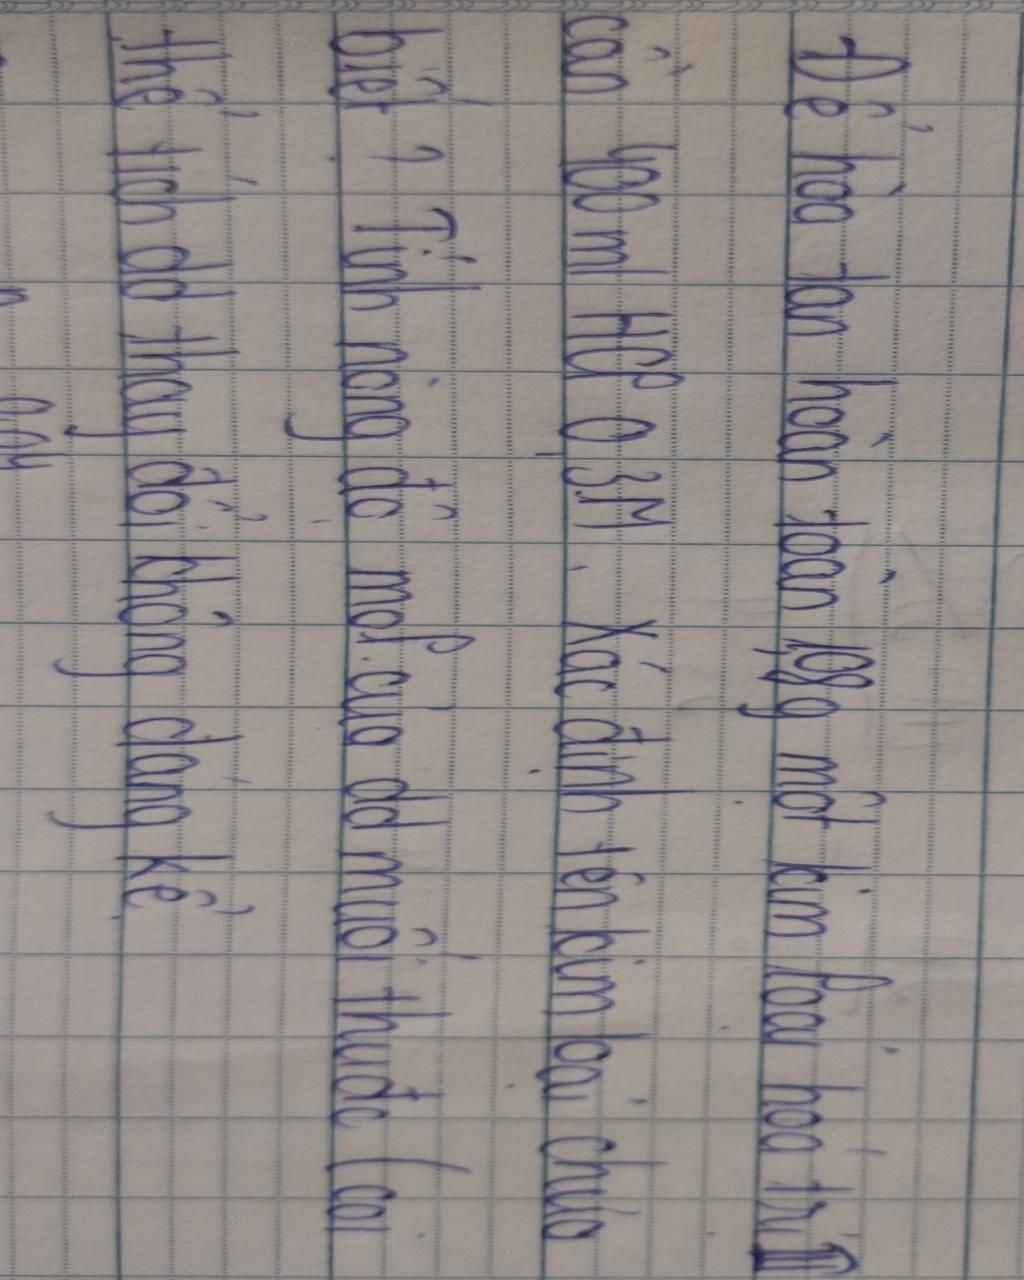 Để hòa tan hoàn toàn 1,08g một kim loại hoá trị III
cần 400 ml HCl 0,3M. Xác định tên kim loại chưa
biết? Tính nồng độ mol của dd muối thu đc (coi
thể tích dd thay đổi không đáng kể